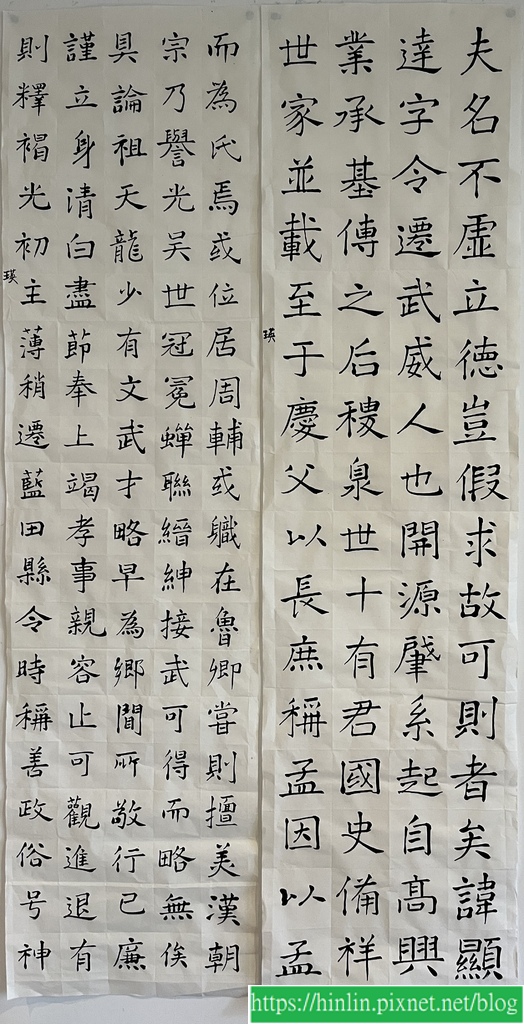 夫名不虛立德豈假求故可則者矣諱顯
達字令遷武威人也開源肇系起自髙興
業承基傳之后稷泉世十有君國史備祥
世家並載至于慶父以長庶稱孟因以孟
瑛
而為氏焉或位居周輔或軄在魯卿甞則擅美漢朝
宗乃譽光吳世冠冕蟬聯縉紳接武可得而略無俟
具論祖天龍少有文武才略早為鄉閭所敬行已廉
謹立身清白盡節奉上竭孝事親容止可觀進退有
則釋褐光初主薄稍遷藍田縣令時稱善政俗号神
瑛
https://hinlin.pixnet.net/blog